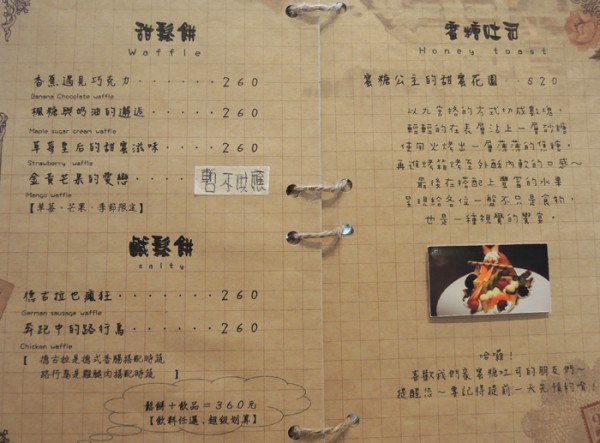 甜鬆餅
Waffle
香蕉遇見巧克力······260
Banana Chocolate waffle
楓糖與奶油的邂逅·····260
Maple sugar cream waffle
草莓皇后的甜蜜滋味····260
Strawberry waffle
金黃芒果的變戀
暫不供應
Mango waffle
【草莓、芒果,季節限定】
鹹鬆餅
salty
德古拉也瘋狂·······260
German sausage waffle
奔跑中的路行鳥······260
Chicken waffle
【 德古拉是德式香腸搭配時蔬
路行鳥是雞腿肉搭配時蔬 】
鬆餅+飲品=360元
【飲料任選,超級划算】
蜜糖吐司
Honey toast
蜜糖公主的甜蜜花園··520
以九宮格的方式切成數塊,
輕輕的在表層沾上一層砂糖
使用火烤出一層薄薄的焦糖,
再進烤箱烤至外酥內軟的口感~
最後在搭配上豐富的水果
呈現給各位一盤不只是食物,
也是一種視覺的饗宴。
哈囉!
喜歡我們家蜜糖吐司的朋友們~
提醒您~要記得提前一天先預約唷!